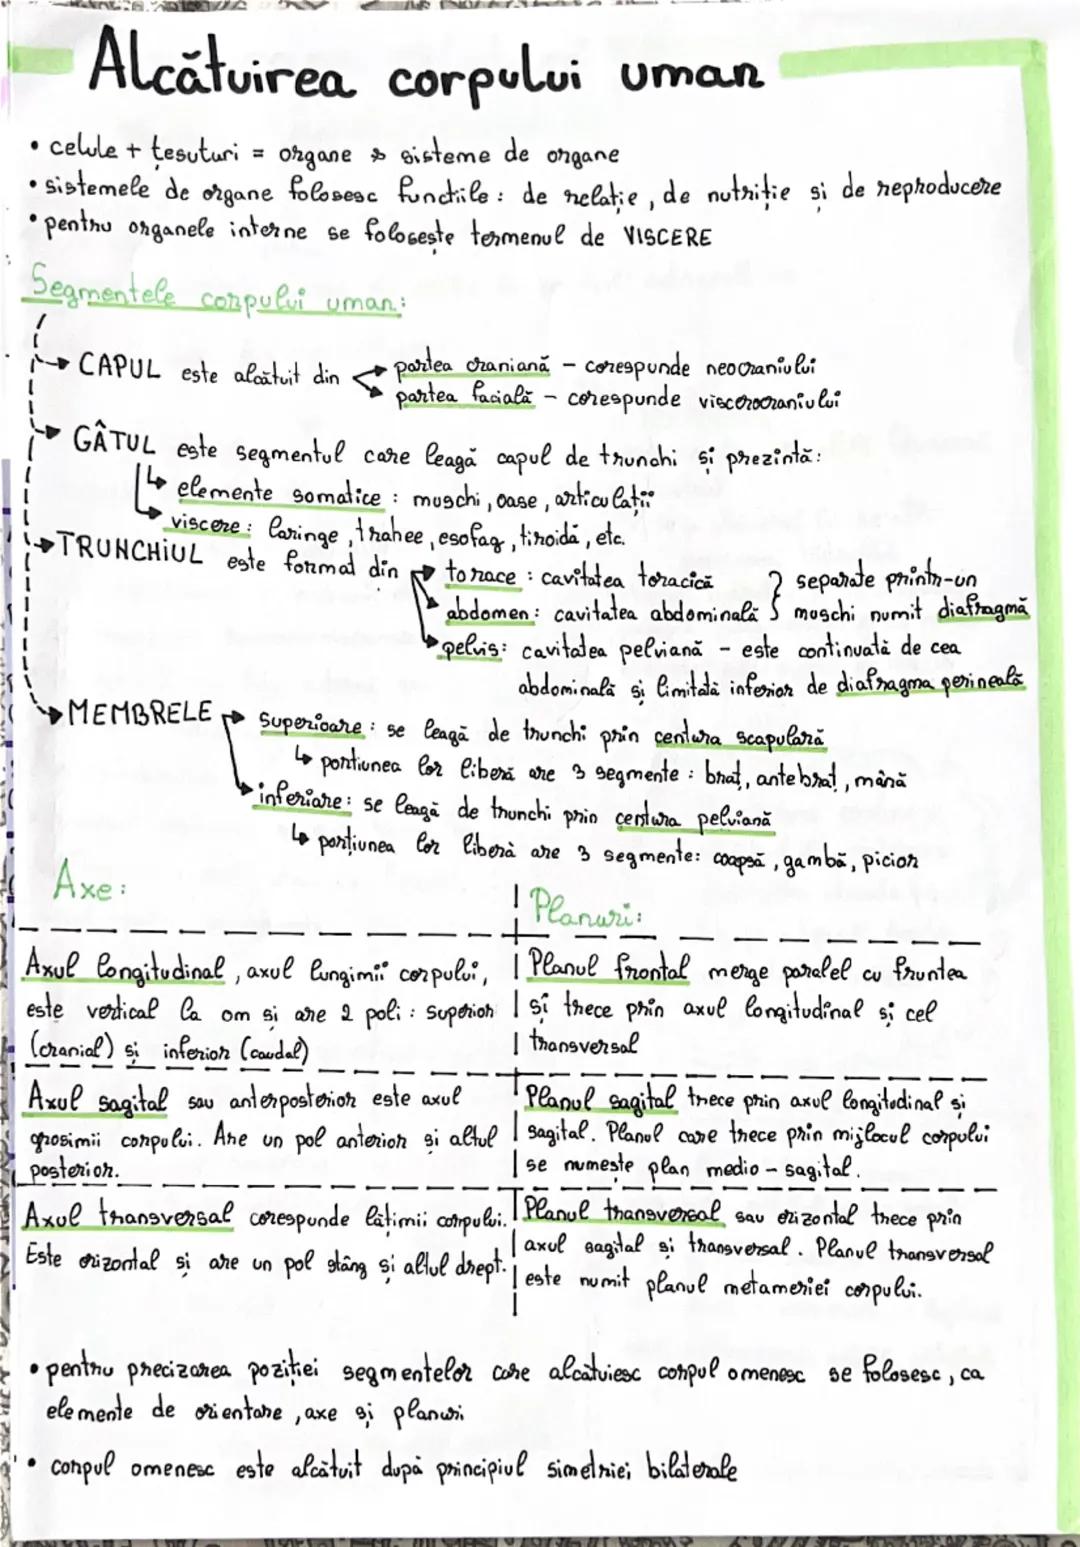 Alcătuirea corpului uman
• celule + țesuturi = organe → sisteme de organe
• sistemele de organe folosesc funcțiile: de relație, de nutriție și de reproducere
• pentru organele interne se folosește termenul de VISCERE
Segmentele corpului uman:
→ CAPUL este alcătuit din
→ partea craniană - corespunde neocraniului
→ partea facială - corespunde viscerocraniului
→ GÂTUL este segmentul care leagă capul de trunchi și prezintă:
↳ elemente somatice: mușchi, oase, articulații
↳ viscere: laringe, trahee, esofag, tiroidă, etc.
→ TRUNCHIUL este format din
→ torace: cavitatea toracică } separate printr-un
→ abdomen: cavitatea abdominală } mușchi numit diafragmă
→ pelvis: cavitatea pelviană - este continuată de cea
abdominală și limitată inferior de diafragma perineală
→ MEMBRELE → superioare: se leagă de trunchi prin centura scapulară
↳ porțiunea lor liberă are 3 segmente: braț, antebraț, mână
→ inferiare: se leagă de trunchi prin centura pelviană
↳ porțiunea lor liberă are 3 segmente: coapsă, gambă, picior
Axe:
Axul longitudinal, axul lungimii corpului,
este vertical la om și are 2 poli: superior
(cranial) și inferior (caudal)
Axul sagital sau anteroposterior este axul
grosimii corpului. Are un pol anterior și altul
posterior.
Axul transversal corespunde lățimii corpului.
Este orizontal și are un pol stâng și altul drept.
Planuri:
Planul frontal merge paralel cu fruntea
și trece prin axul longitudinal și cel
transversal
Planul sagital trece prin axul longitudinal și
sagital. Planul care trece prin mijlocul corpului
se numește plan medio-sagital.
Planul transversal sau orizontal trece prin
axul sagital și transversal. Planul transversal
este numit planul metameriei corpului.
• pentru precizarea poziției segmentelor care alcătuiesc corpul omenesc se folosesc, ca
elemente de orientare, axe și planuri
• corpul omenesc este alcătuit după principiul simetriei bilaterale